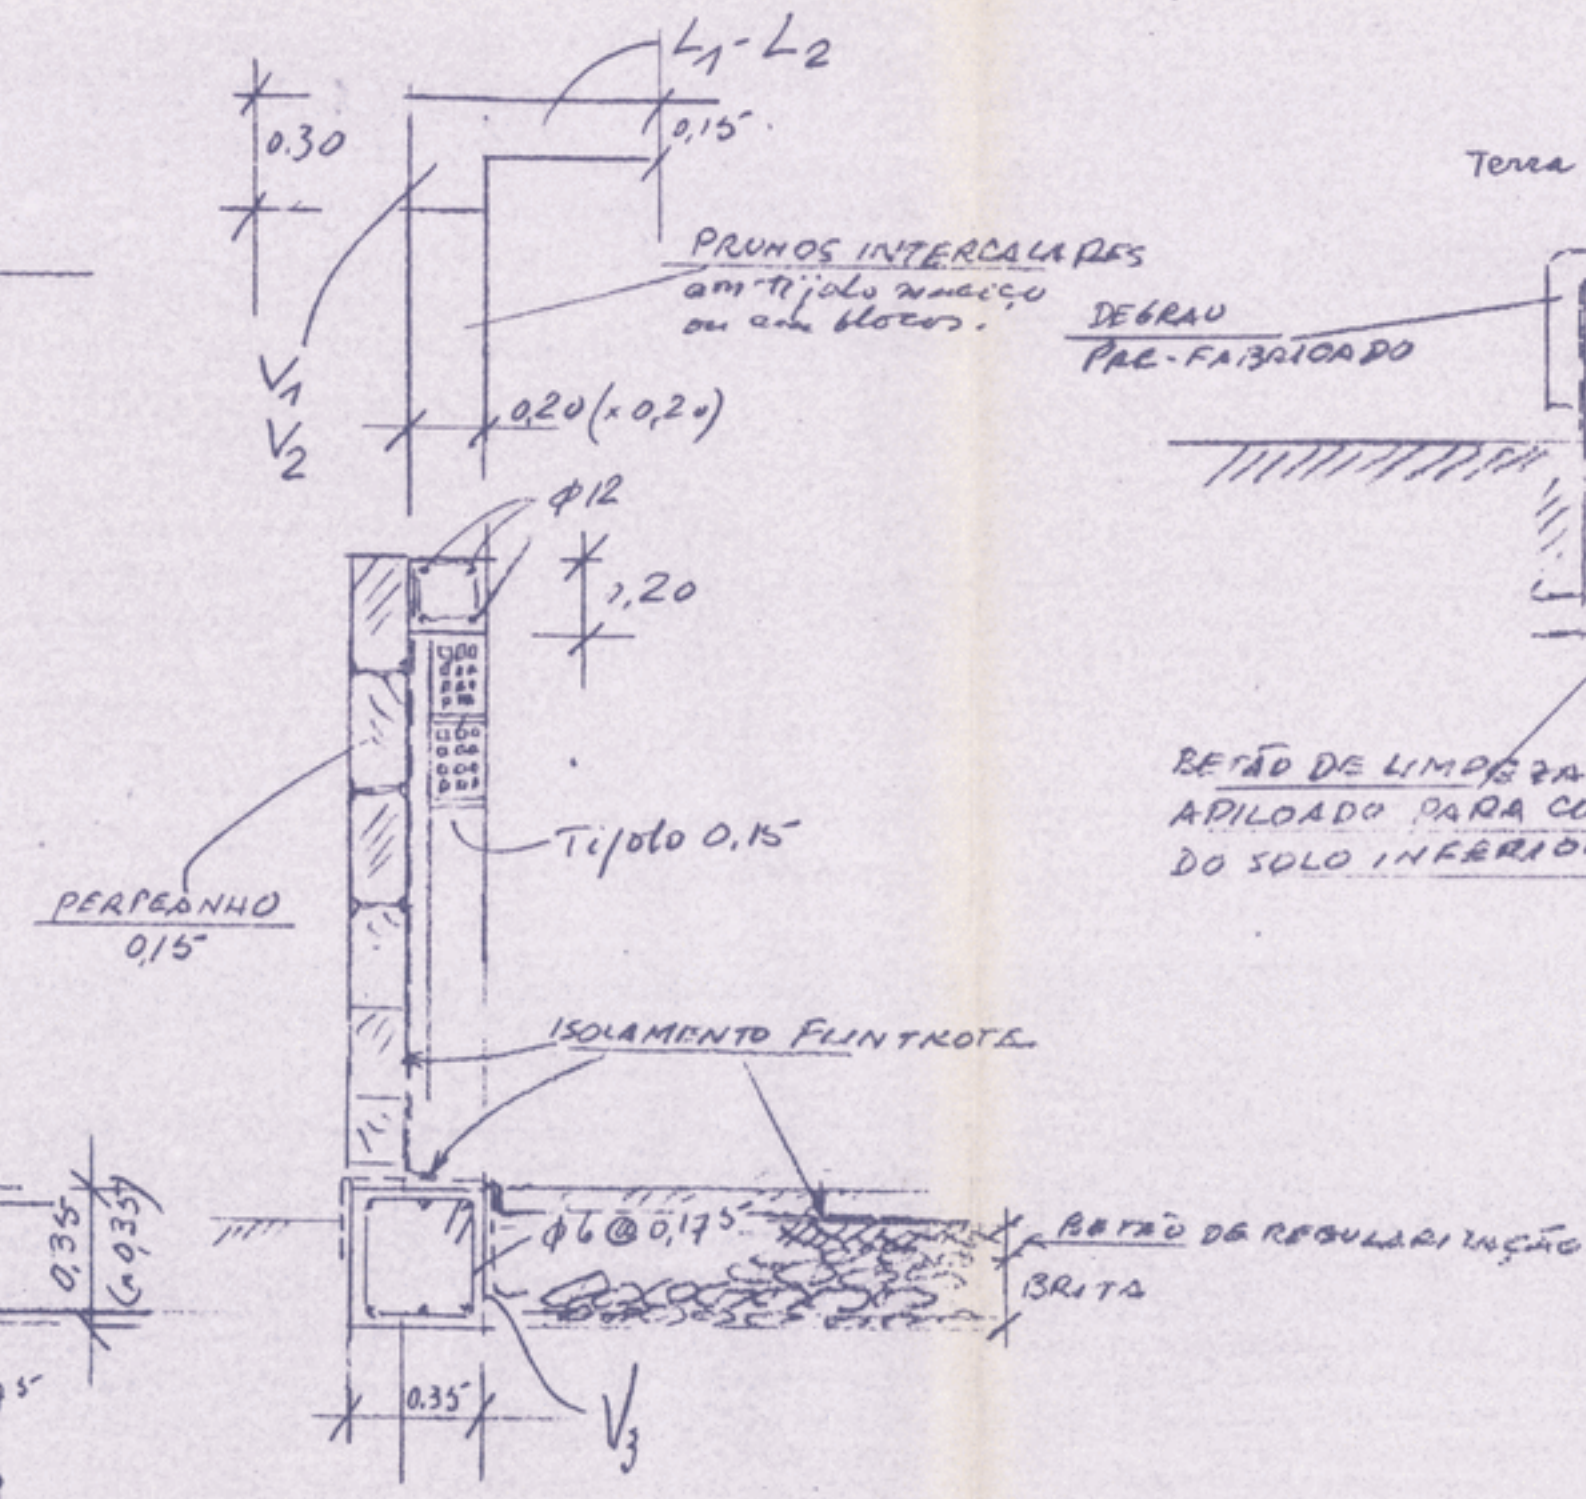 L1 - L2
0.30
0,15
Terra
PRUMOS INTERCALARES
em tijolo maciço
ou em blocos.
DEGRAU
PRE-FABRICADO
V1
V2
0,20 (x 0,20)
φ12
,20
BETÃO DE LIMPEZA
APILOADO PARA CO
DO SOLO INFERIO
Tijolo 0,15
PERPEANHO
0,15
ISOLAMENTO FLINTKOTE
0,35
(x 0,35)
φ6 @ 0,175
BETÃO DE REGULARIZAÇÃO
BRITA
0.35
V3